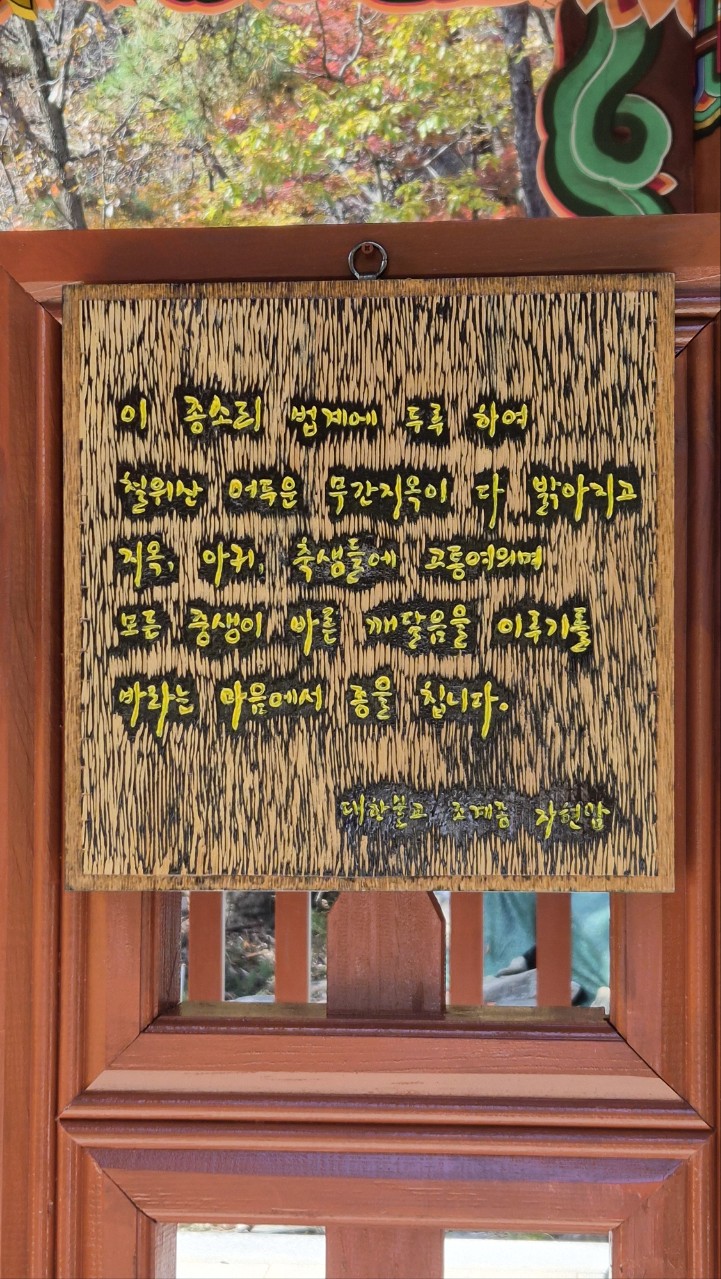 이 종소리 법계에 두루 하여
철위산 어두운 무간지옥이 다 밝아지고
지옥, 아귀, 축생들에 고통여의며
모든 중생이 바른 깨달음을 이루기를
바라는 마음에서 종을 칩니다.
대한불교 조계종 자현암